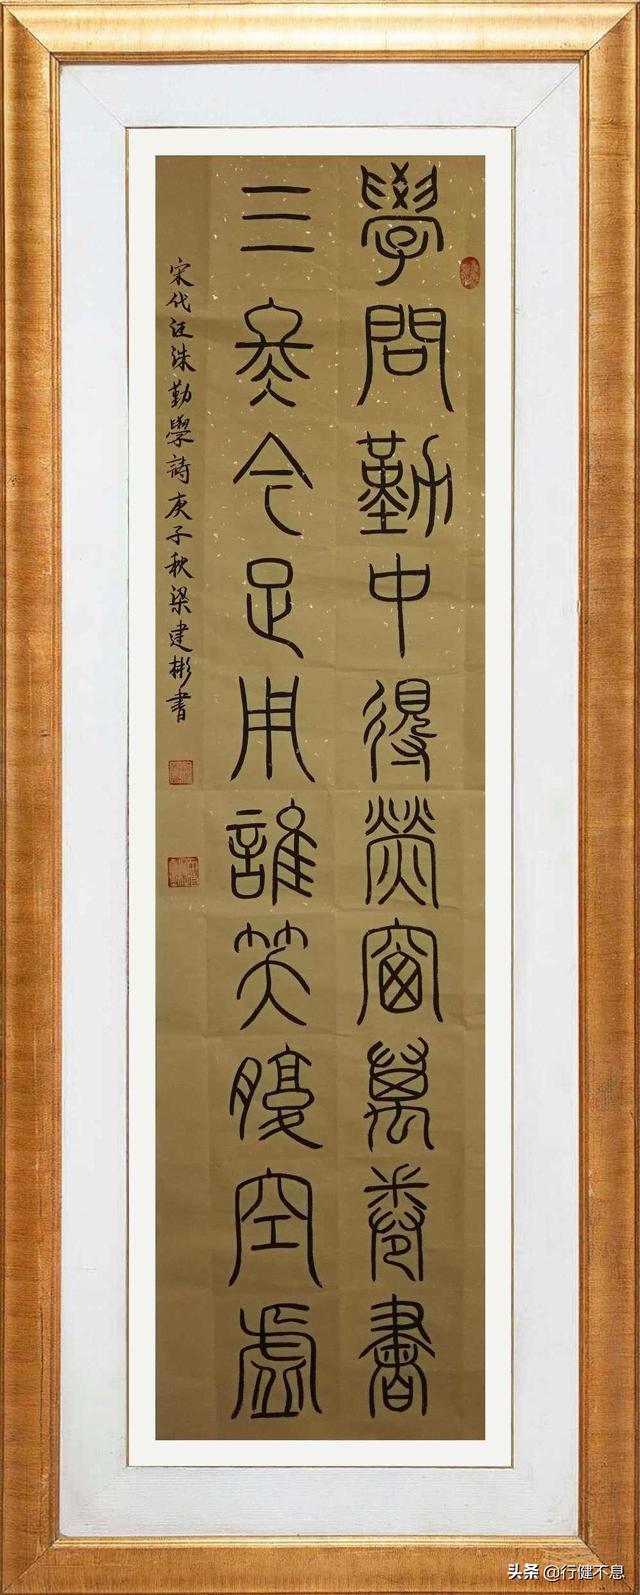 學問勤中得螢窗萬卷書
三冬今足用誰笑腹空虛
宋代汪洙勤學詩庚子秋梁建彬書
头条@行健不息